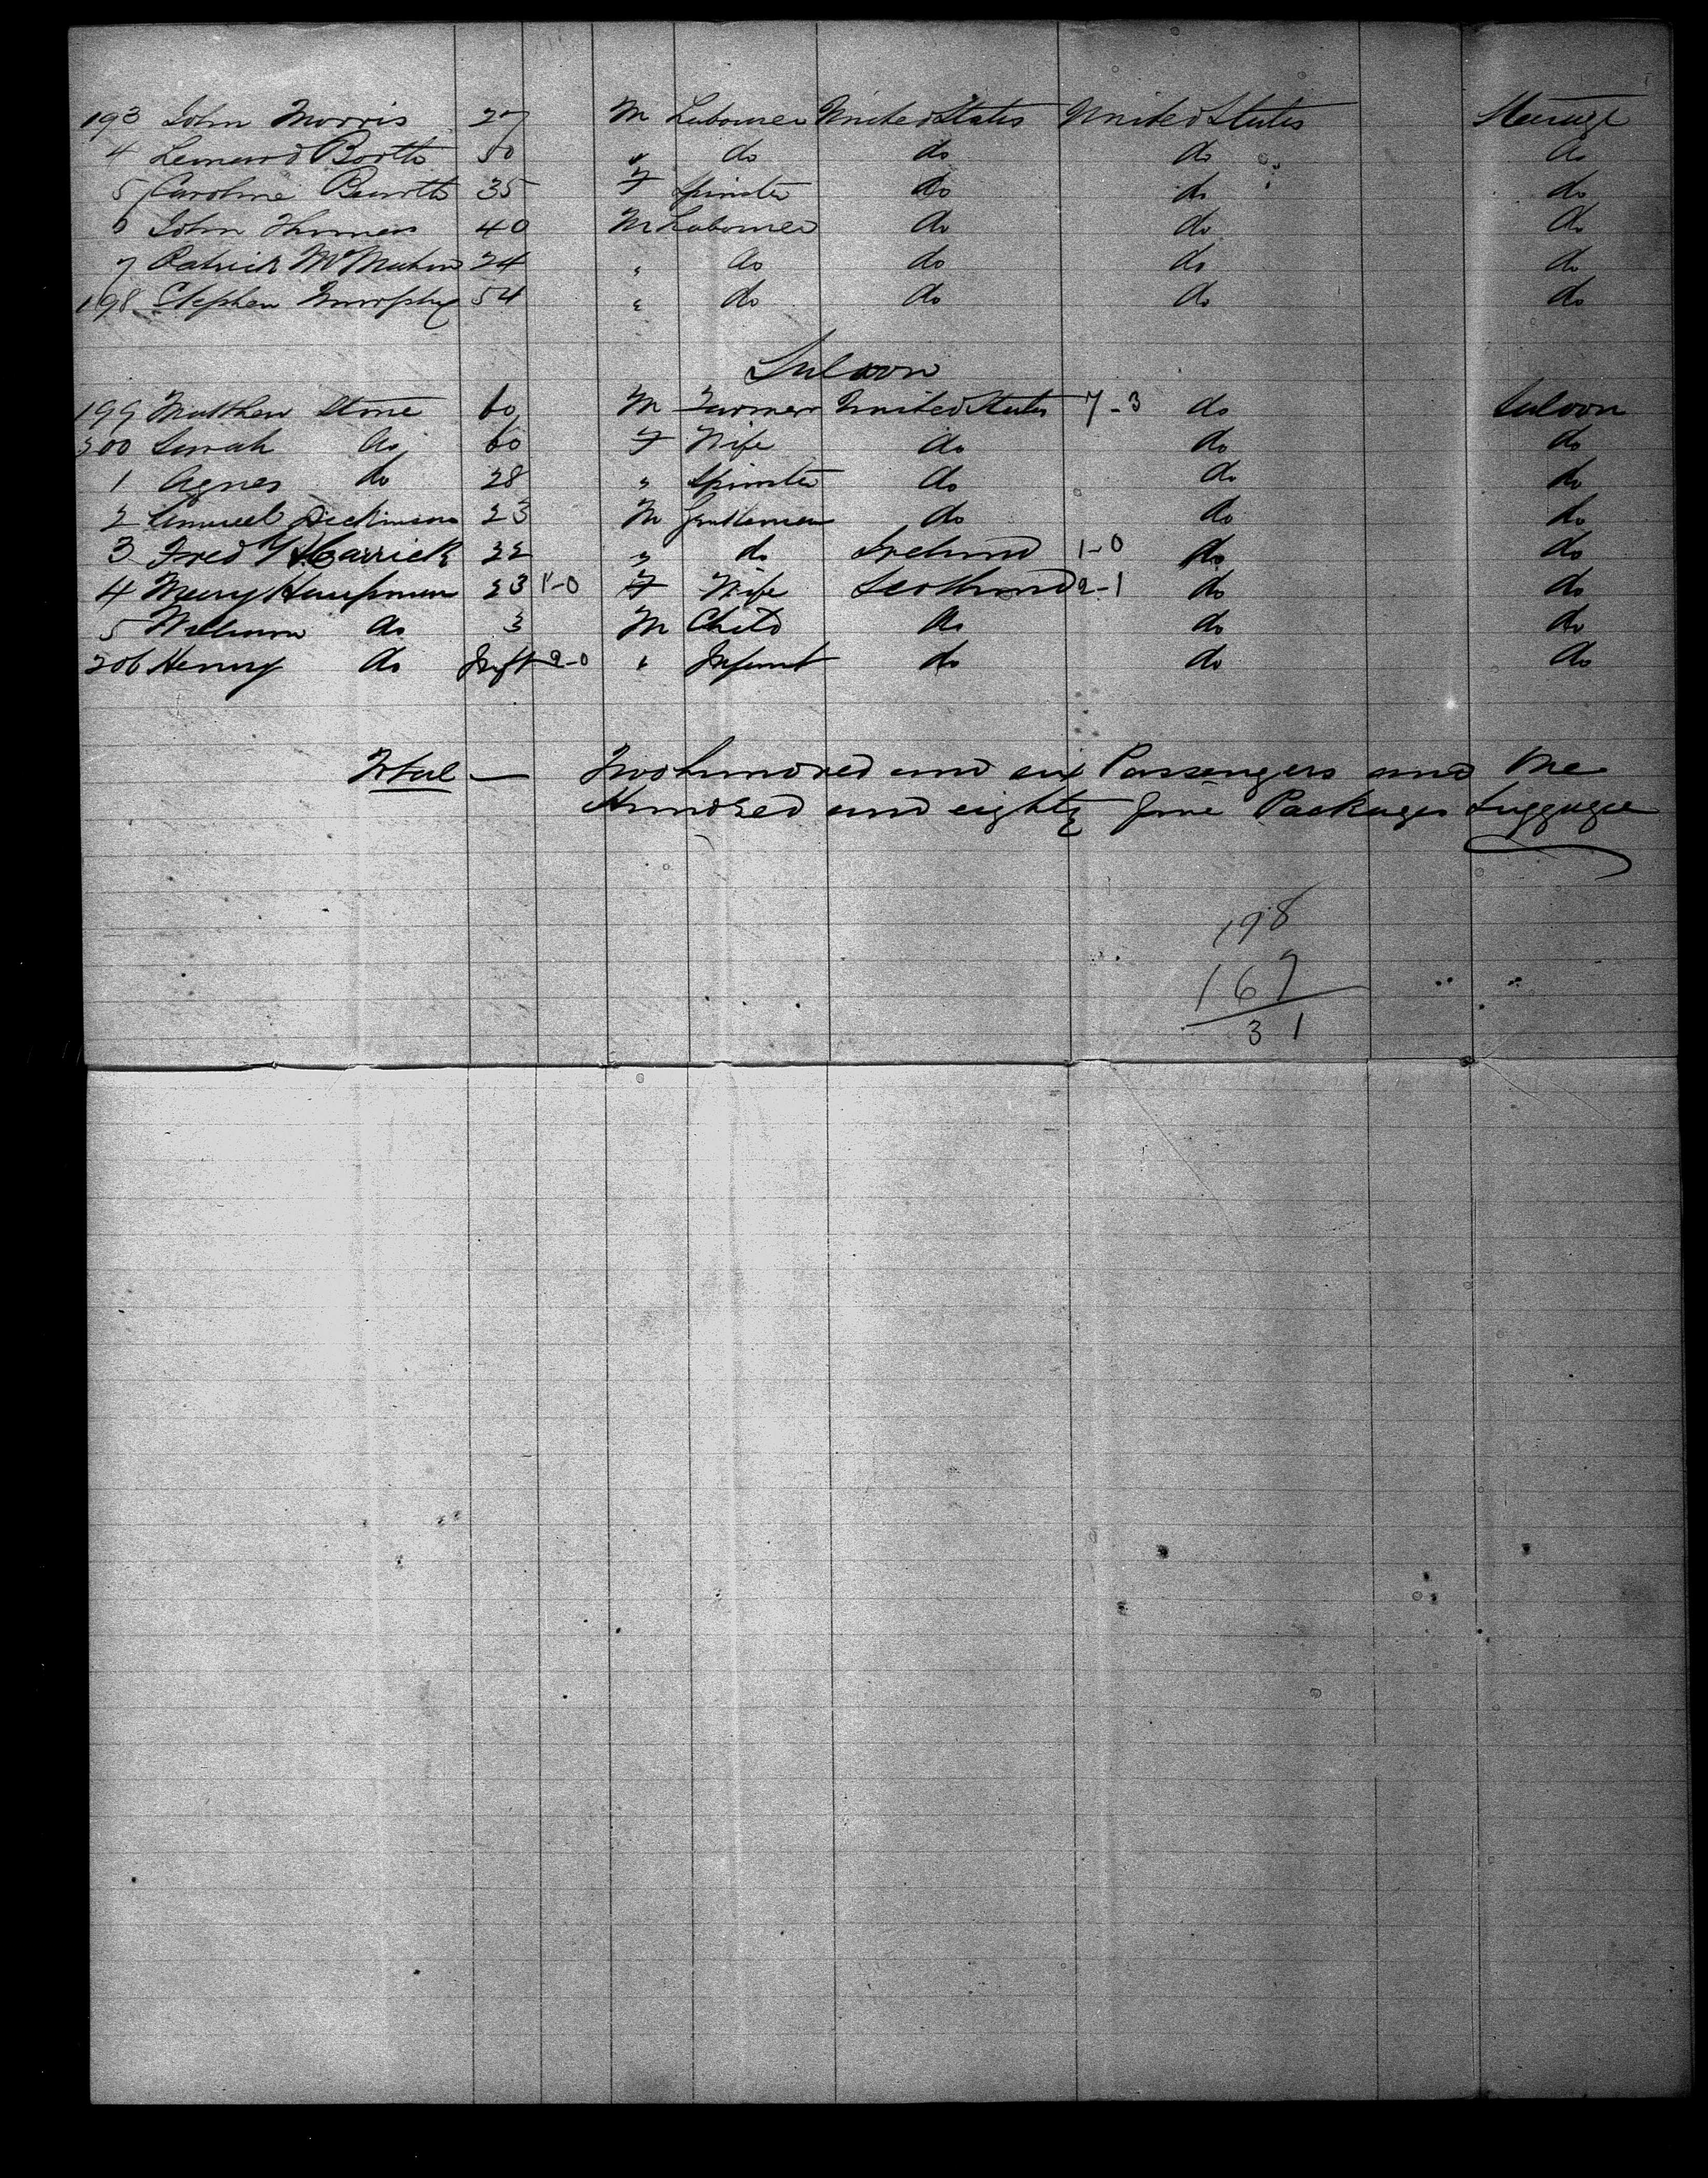 193 John Morris 27 M Labourer United States United States Steerage
4 Leonard Booth 50 " do do do do
5 Caroline Booth 35 F Spinster do do do
6 John Thomas 40 M Labourer do do do
7 Patrick McMahon 24 " do do do do
198 Stephen Murphy 54 " do do do do
Saloon
199 Matthew Stone 60 M Farmer United States 7-3 do Saloon
200 Sarah do 60 F Wife do do do
1 Agnes do 28 " Spinster do do do
2 Samuel Dickinson 23 M Gentleman do do do
3 Fred Carrick 22 " do Ireland 1-0 do do
4 Mary Haupman 23 1-0 F Wife Scotland 2-1 do do
5 William do 3 M Child do do do
206 Henry do Inft 2-0 " Infant do do do
Total — Two hundred and six Passengers and One
Hundred and eighty five Packages Luggage
198
167
31